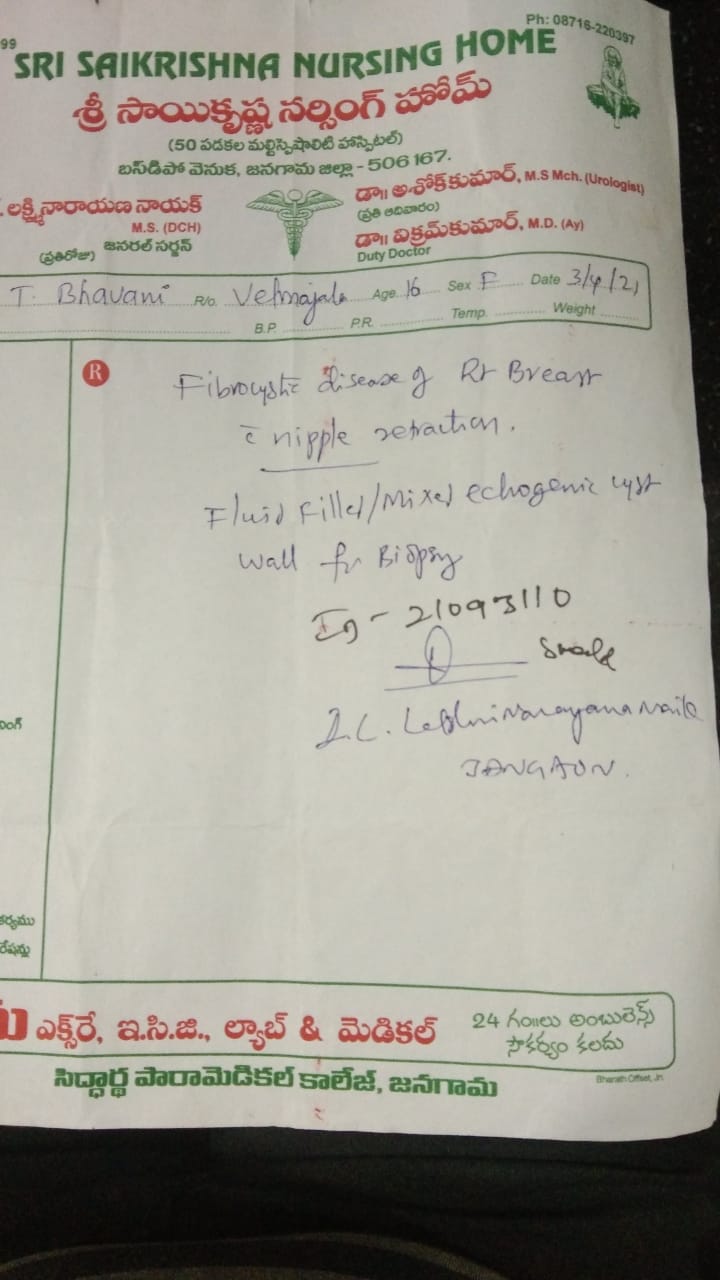 99
Ph: 08716-220397
SRI SAIKRISHNA NURSING HOME
శ్రీ సాయికృష్ణ నర్సింగ్ హోమ్
(50 పడకల మల్టిస్పెషాలిటి హాస్పిటల్)
బస్‌డిపో వెనుక, జనగామ జిల్లా - 506 167.
. లక్ష్మినారాయణ నాయక్
M.S. (DCH)
(ప్రతిరోజు) జనరల్ సర్జన్
డా॥ అశోక్‌కుమార్, M.S Mch. (Urologist)
(ప్రతి ఆదివారం)
డా॥ విక్రమ్‌కుమార్, M.D. (Ay)
Duty Doctor
T. Bhavani R/o. Velmajala Age 16 Sex F Date 3/4/21
B.P. P.R. Temp. Weight
R
Fibrocystic disease of Rt Breast
c̄ nipple retraction.
Fluid filled/Mixed echogenic cyst
wall for Biopsy
21093110
JANGAON.
నింగ్
కర్యము
రేషన్లు
ఎక్స్‌రే, ఇ.సి.జి., ల్యాబ్ & మెడికల్
24 గం॥లు అంబులెన్స్
సౌకర్యం కలదు
సిద్ధార్థ పారామెడికల్ కాలేజ్, జనగామ
Bharath Offset, Jn.